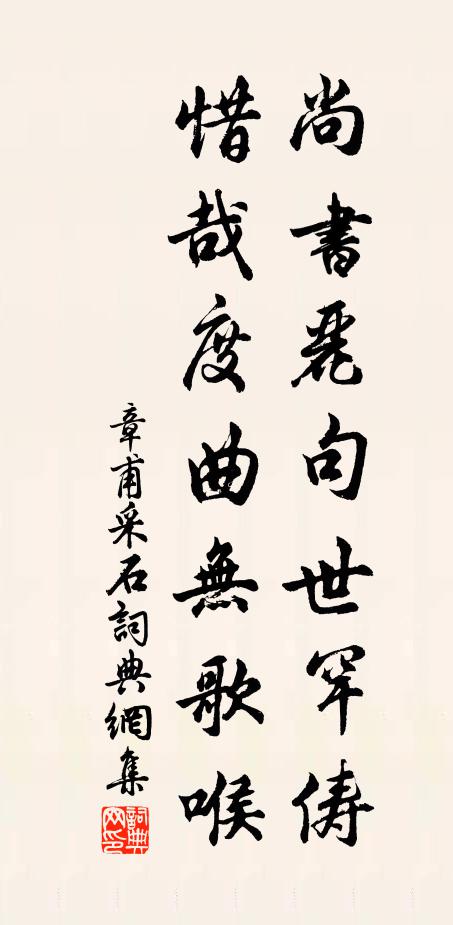 尚書麗句世罕儔
惜哉度曲無歌喉
章甫采石詞典網集
詞典网印